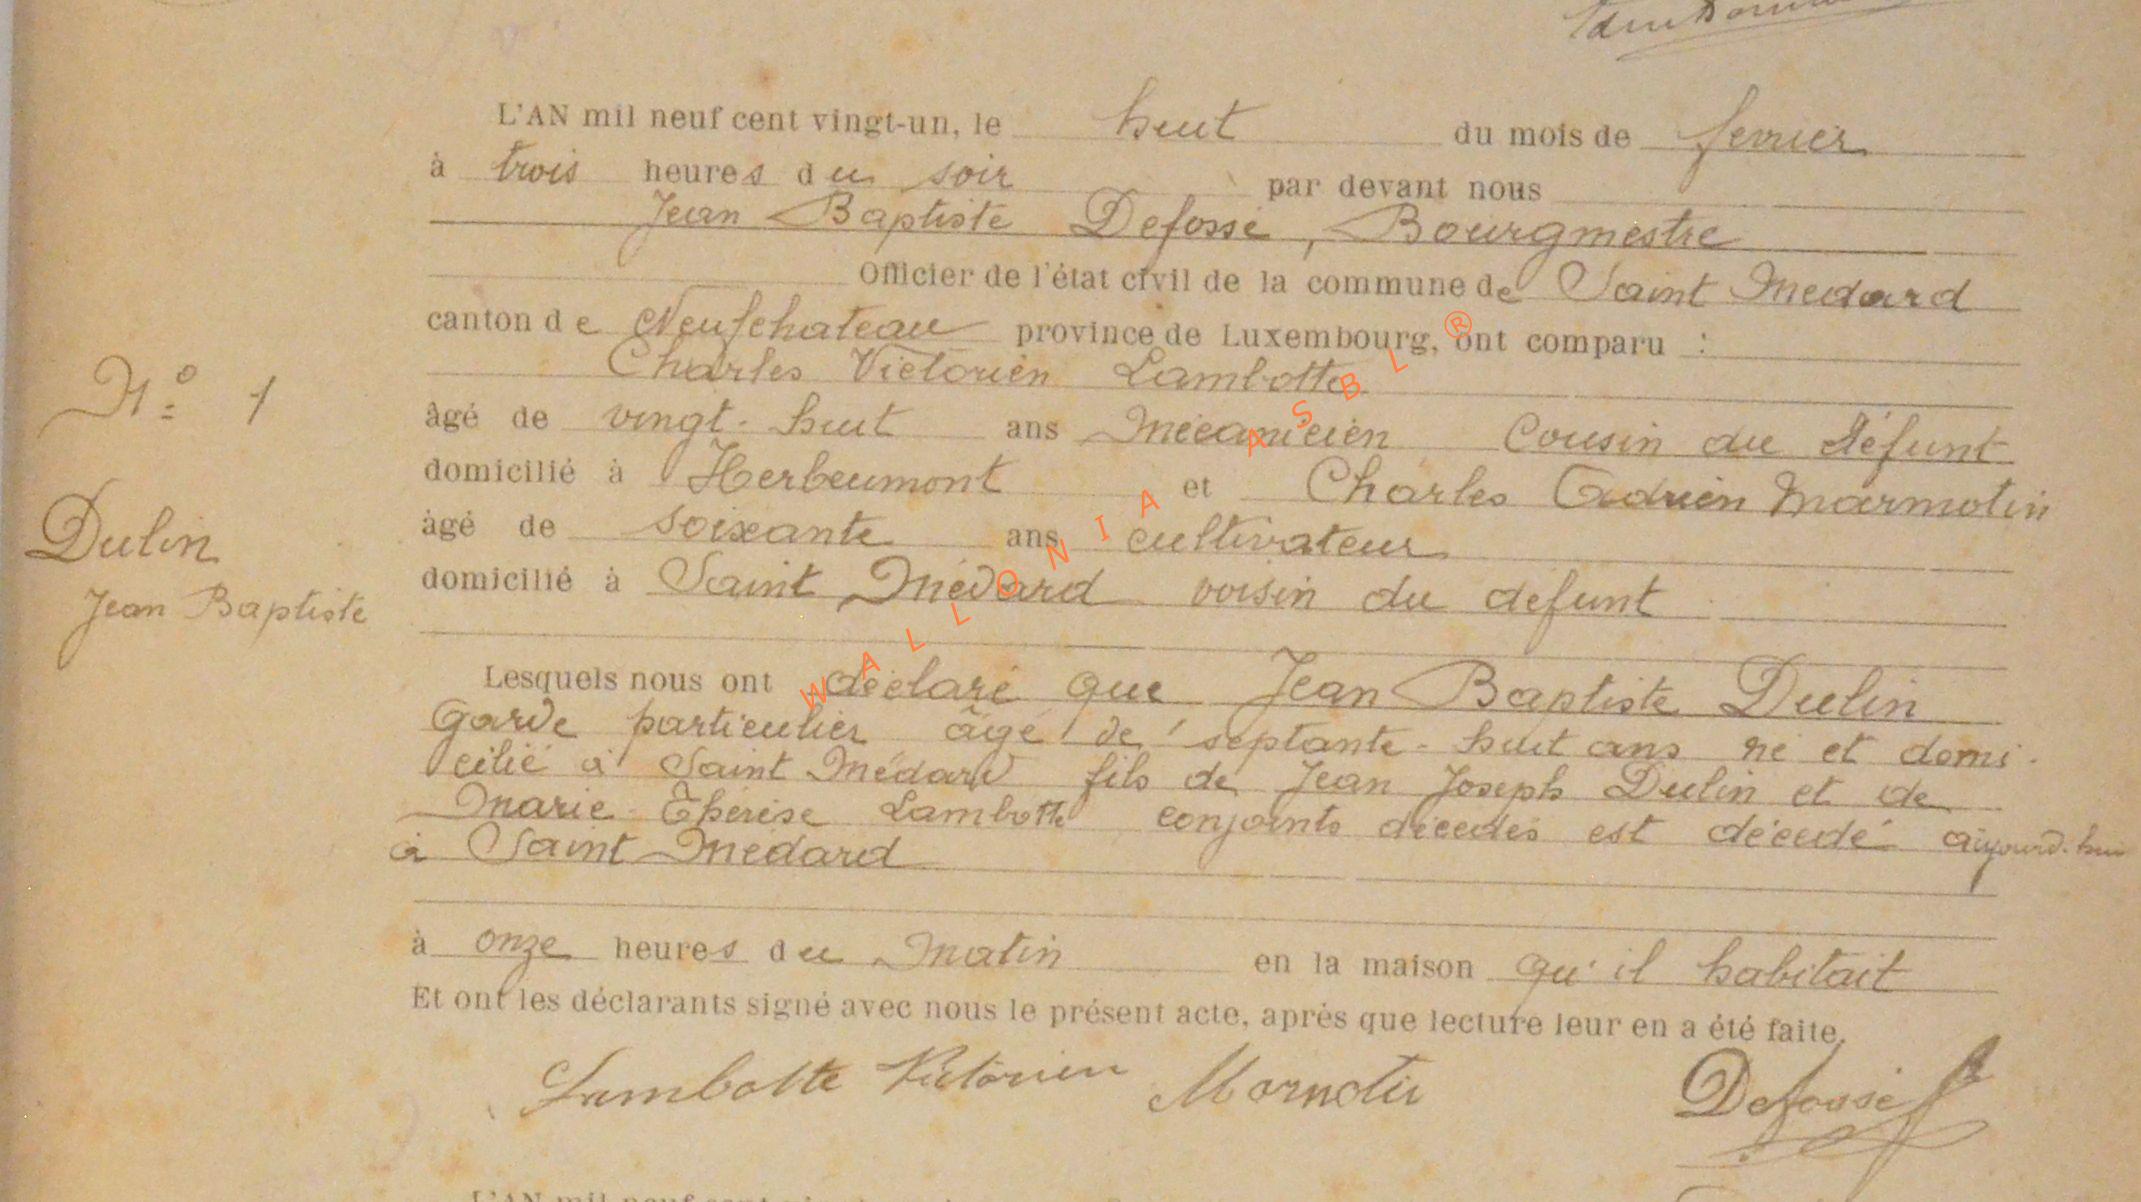 L'AN mil neuf cent vingt-un, le huit du mois de fevrier
à trois heures du soir par devant nous
Jean Baptiste Defossé, Bourgmestre
Officier de l'état civil de la commune de Saint Medard
canton de Neufchateau province de Luxembourg, ont comparu :
Charles Victorien Lambotte
âgé de vingt-huit ans Mécanicien Cousin du défunt
domicilié à Herbeumont et Charles Adrien Marmotin
N° 1
âgé de soixante ans cultivateur
Dulin
Jean Baptiste
domicilié à Saint Médard voisin du defunt
Lesquels nous ont déclaré que Jean Baptiste Dulin
Garde particulier âgé de septante-huit ans né et domi-
cilié à Saint Médard fils de Jean Joseph Dulin et de
Marie Thérèse Lambotte conjoints décédés est décédé aujourd'hui
à Saint Médard
à onze heures du Matin en la maison qu'il habitait
Et ont les déclarants signé avec nous le présent acte, après que lecture leur en a été faite.
Lambotte Victorien Marmotin Defossé
WALLONIA ASBL ®